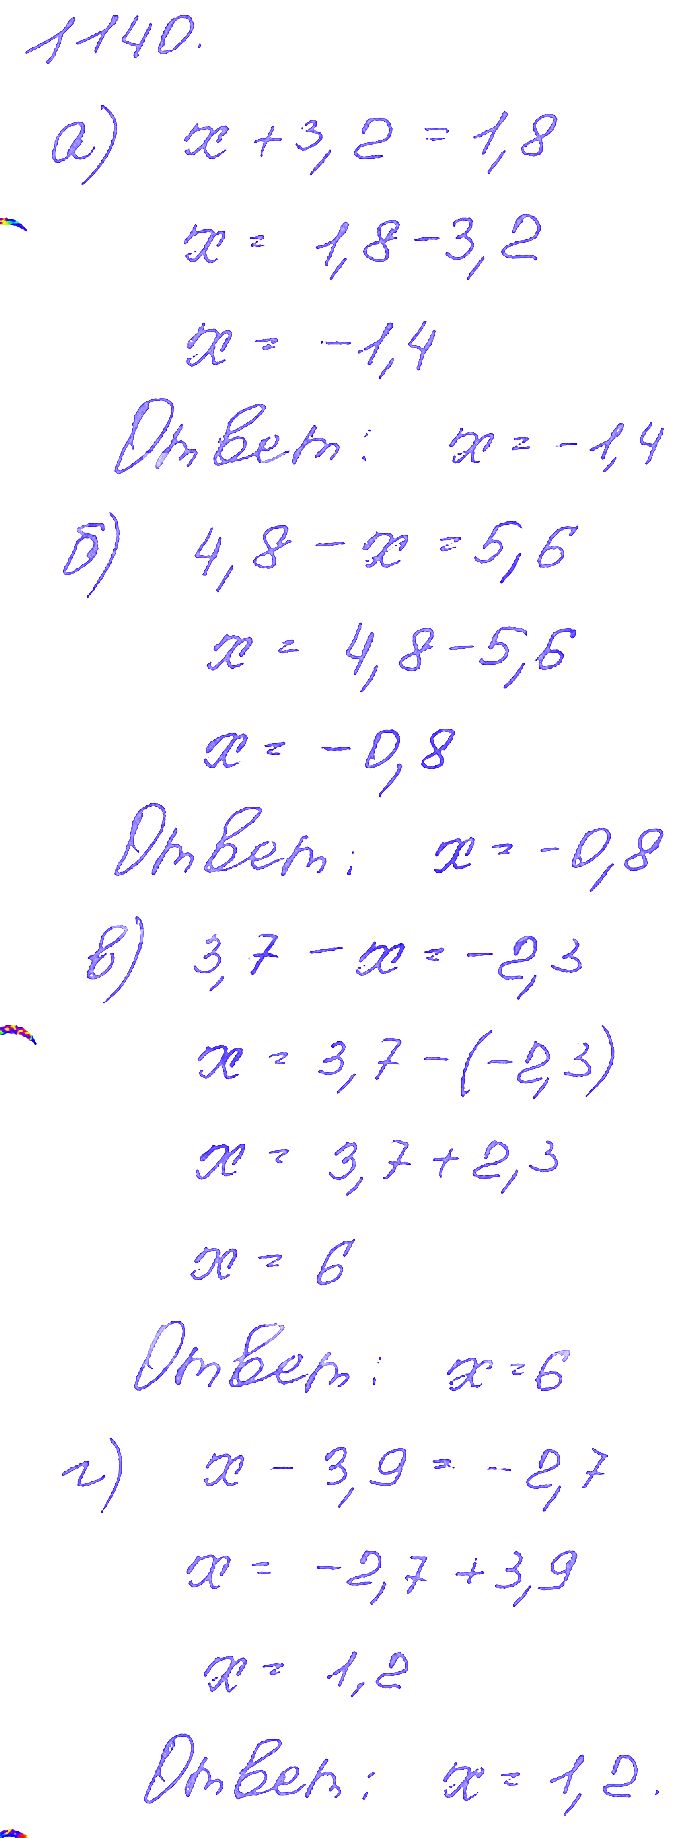 1140.
а) x + 3,2 = 1,8
x = 1,8 - 3,2
x = -1,4
Ответ: x = -1,4
б) 4,8 - x = 5,6
x = 4,8 - 5,6
x = -0,8
Ответ: x = -0,8
в) 3,7 - x = -2,3
x = 3,7 - (-2,3)
x = 3,7 + 2,3
x = 6
Ответ: x = 6
г) x - 3,9 = -2,7
x = -2,7 + 3,9
x = 1,2
Ответ: x = 1,2.